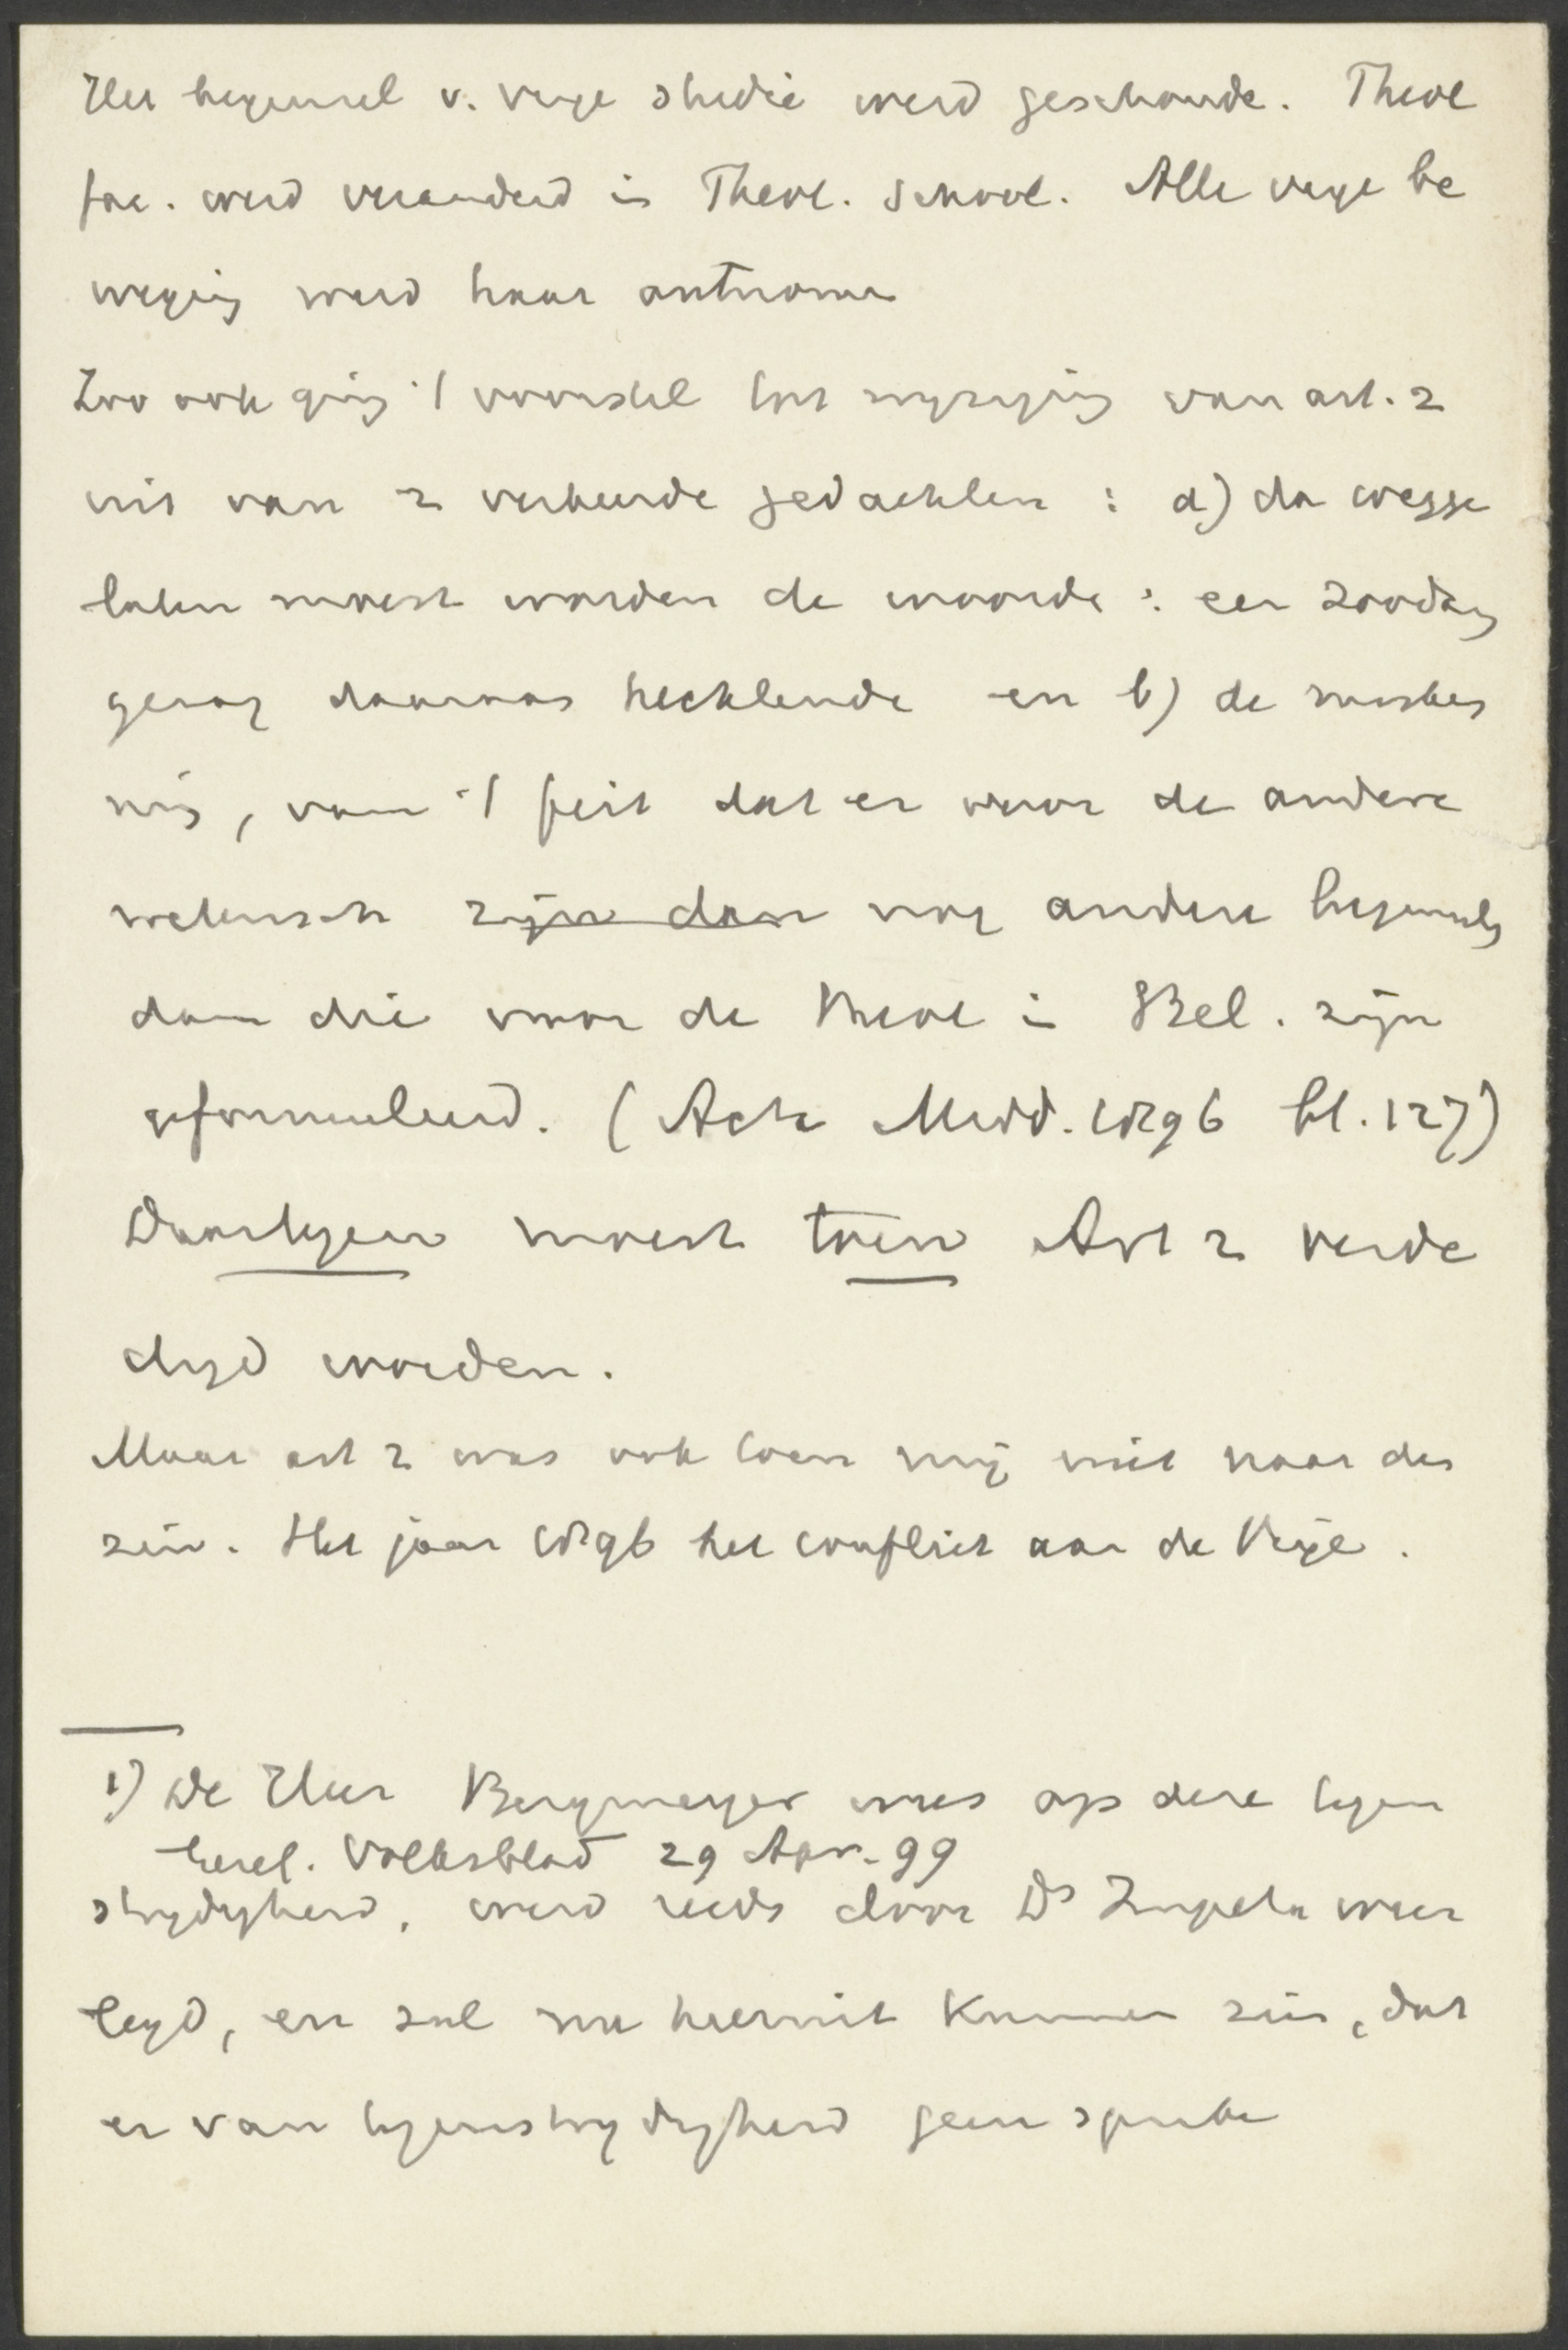 Het beginsel v. vrije studie werd geschonde. Theol
fac. werd veranderd in Theol. School. Alle vrije be
weging werd haar ontnomen
Zoo ook ging 't voorstel tot wijziging van art. 2
uit van 2 verkeerde gedachten : a) da wegge
laten moest worden de woorde : een zoodanig
gezag daaraan hechtende en b) de misken
ning, van 't feit dat er voor de andere
wetensch zijn dan nog andere beginsels
dan die voor de Theol in Bel. zijn
geformuleerd. (Acta Midd. 1896 bl. 127)
Daartegen moest toen Art 2 verde
digd worden.
Maar art 2 was ook toen mij niet naar den
zin. Het jaar 1896 het conflict aan de Vrije.
1) De Heer Bergmeyer wees op deze tegen
Gerel. Volksblad 29 Apr. 99
strijdigheid, werd reeds door Ds weer
legd, en zal nu hieruit kunnen zien, dat
er van tegenstrijdigheid geen sprake